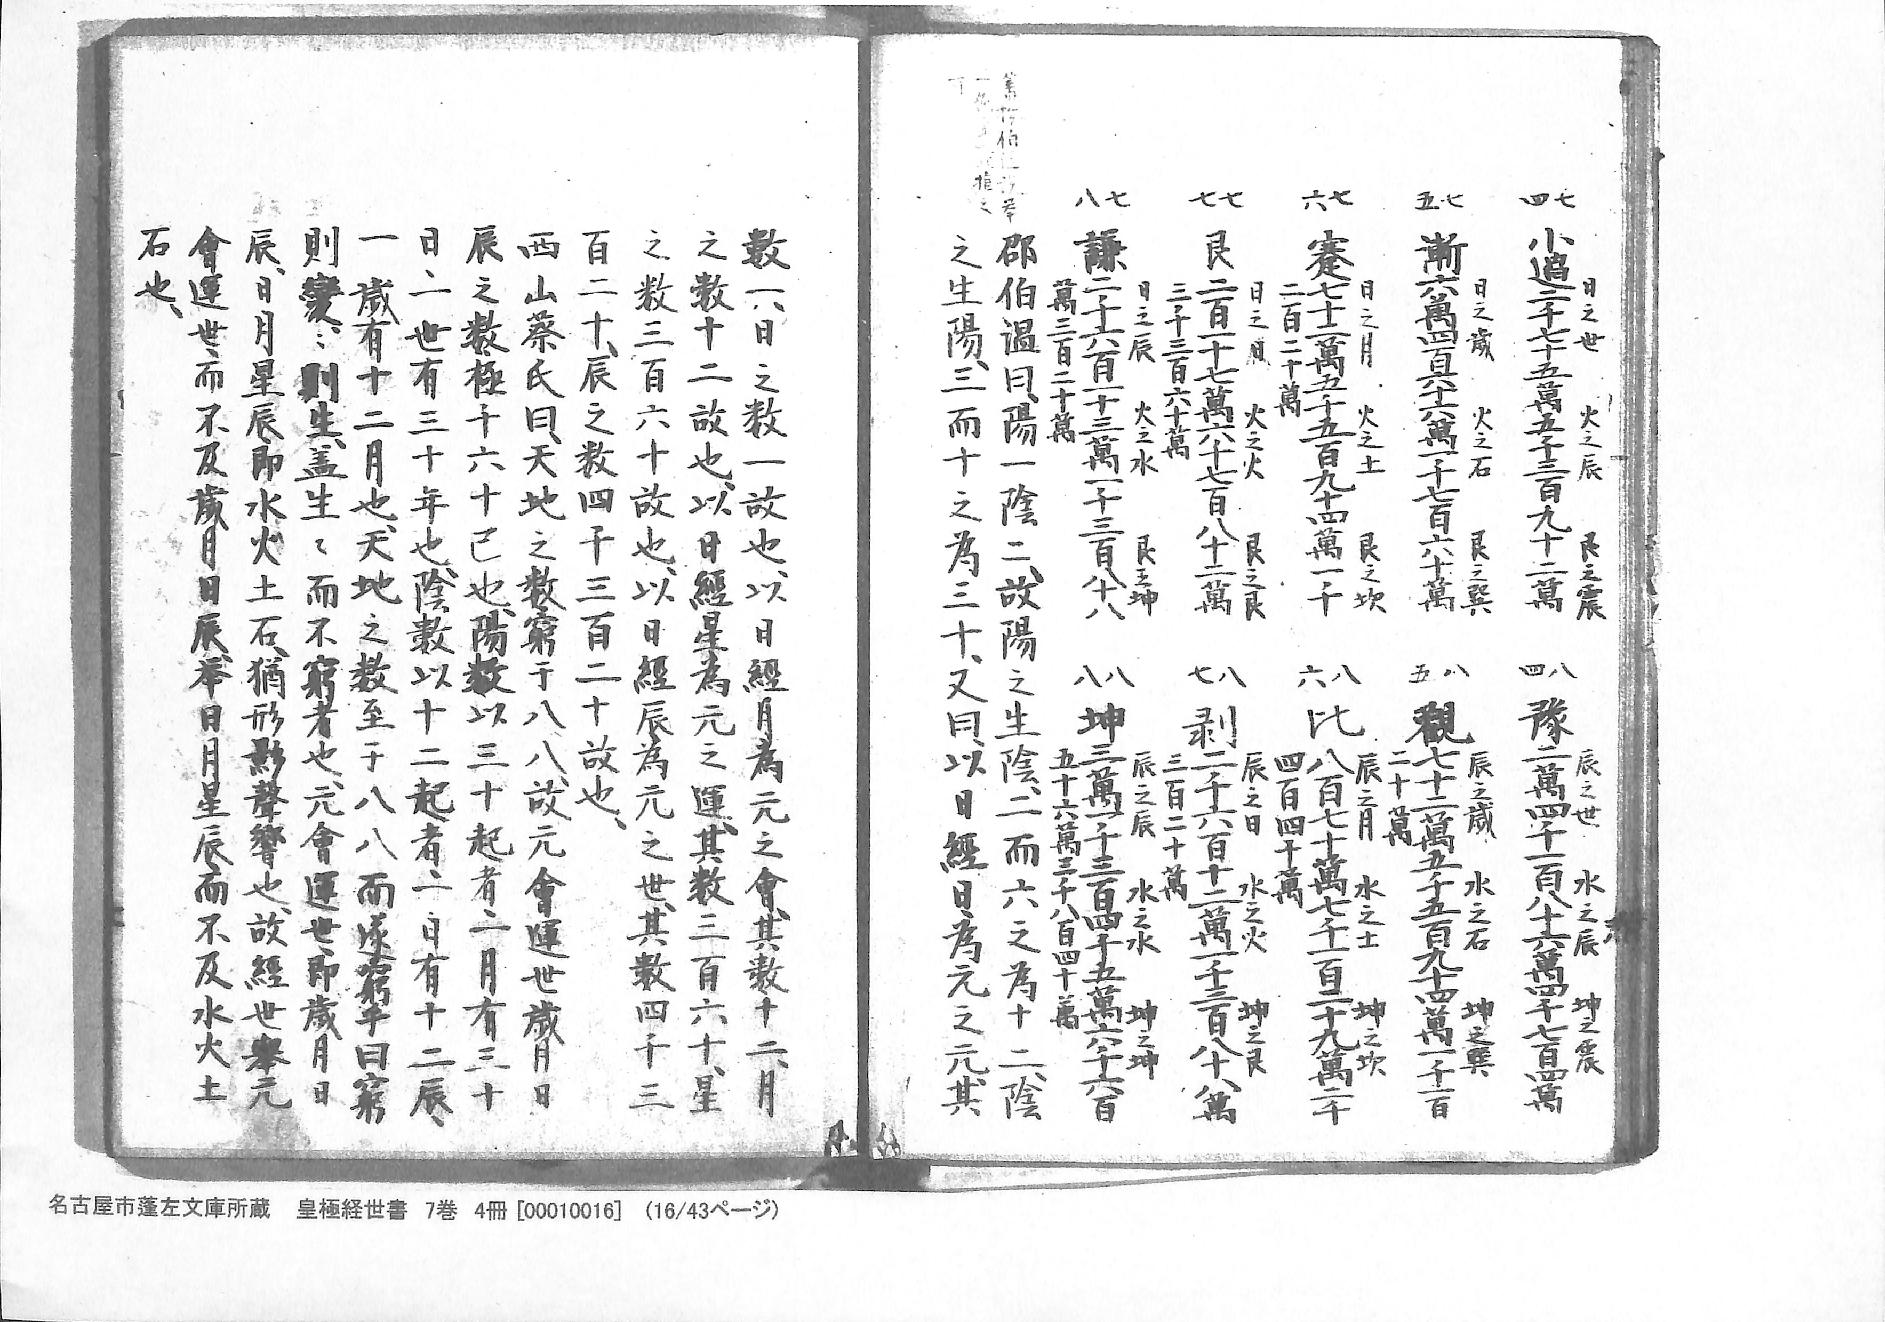 七四 小過 日之世 火之辰 艮之震
二千七十五萬五千三百九十二萬
八四 豫 辰之世 水之辰 坤之震
二萬四千一百八十六萬四千七百四萬
七五 漸 日之歲 火之石 艮之巽
六萬四百六十六萬一千七百六十萬
八五 觀 辰之歲 水之石 坤之巽
七十二萬五千五百九十四萬一千一百
二十萬
七六 蹇 日之月 火之土 艮之坎
七十二萬五千五百九十四萬一千
二百二十萬
八六 比 辰之月 水之土 坤之坎
八百七十萬七千一百二十九萬二千
四百四十萬
七七 艮 日之日 火之火 艮之艮
二百一十七萬六千七百八十二萬
三千三百六十萬
八七 剥 辰之日 水之火 坤之艮
二千六百十二萬一千三百八十八萬
三百二十萬
七八 謙 日之辰 火之水 艮之坤
二千六百一十三萬一千三百八十八
萬三百二十萬
八八 坤 辰之辰 水之水 坤之坤
三萬一千三百四千五萬六千六百
五十六萬三千八百四十萬
邵伯温曰、陽一陰二、故陽之生陰、二而六之為十二、陰
之生陽、三而十之為三十、又曰、以日經日、為元之元、其
數一、日之数一故也、以日經月為元之會、其数十二、月
之数十二故也、以日經星為元之運、其数三百六十、星
之数三百六十故也、以日經辰為元之世、其数四千三
百二十、辰之数四千三百二十故也、
西山蔡氏曰、天地之数窮于八八、故元會運世歲月日
辰之数極十六十已也、陽数以三十起者、一月有三十
日、一世有三十年也、陰数以十二起者、一日有十二辰、
一歲有十二月也、天地之数至于八八而遂窮乎曰窮
則變、〻則生、盖生〻而不窮者也、元會運世、即歲月日
辰、日月星辰、即水火土石、猶形影聲響也、故經世舉元
會運世、而不及歲月日辰、举日月星辰、而不及水火土
石也、
名古屋市蓬左文庫所蔵 皇極経世書 7巻 4冊 [00010016] (16/43ページ)